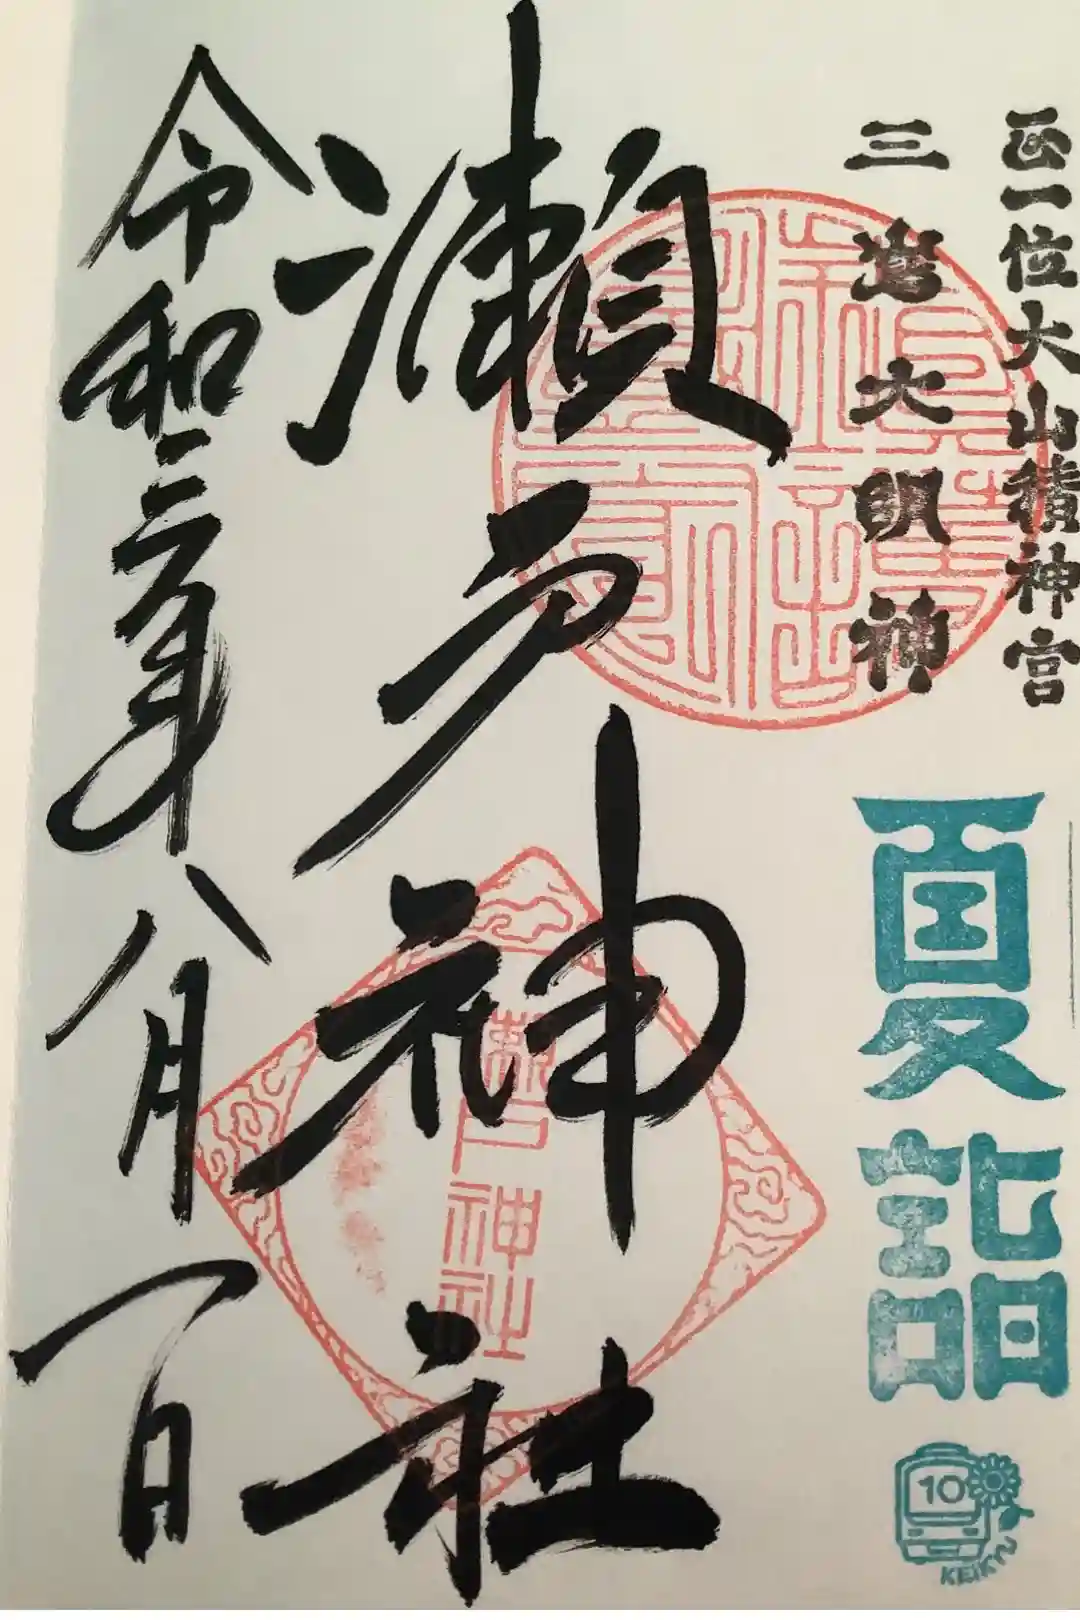 正一位大山積神宮
三嶌大明神
夏詣
10
KEIKYU
瀬戸神社
瀬戸神社
令和三年八月一日